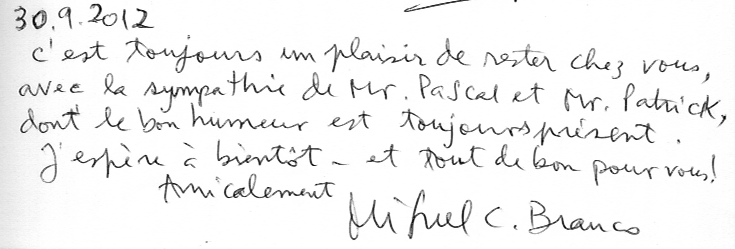 30.9.2012
c'est toujours um plaisir de rester chez vous,
avec la sympathie de Mr. Pascal et Mr. Patrick,
dont le bon humeur est toujours présent.
J'espère à bientôt - et tout de bon pour vous!
Amicalement
Miguel C. Branco